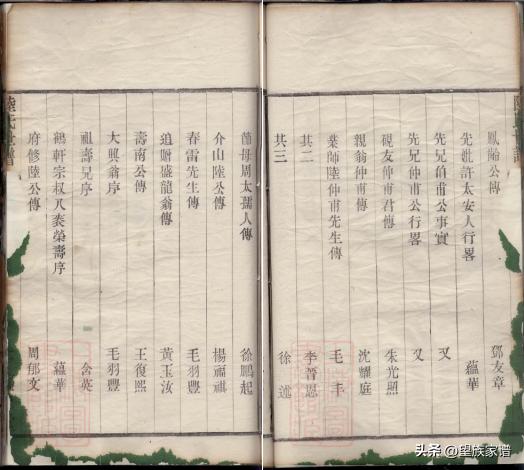 鳳詥公傳 鄧友章
先妣許太安人行畧 蘊華
先兄伯甫公事實 又
先兄仲甫公行畧 又
硯友仲甫君傳 朱光照
親翁仲甫傳 沈耀庭
業師陸仲甫先生傳 毛丰
其二 李晉恩
其三 徐述
節母周太孺人傳 徐鵬起
介山陸公傳 楊福祺
春雷先生傳 毛羽豐
追贈盛龍翁傳 黃玉汝
壽南公傳 王復熙
大興翁序 毛羽豐
祖壽兄序 含英
鶴軒宗叔八袠榮壽序 蘊華
府修陸公傳 周郁文
头条@望族家谱